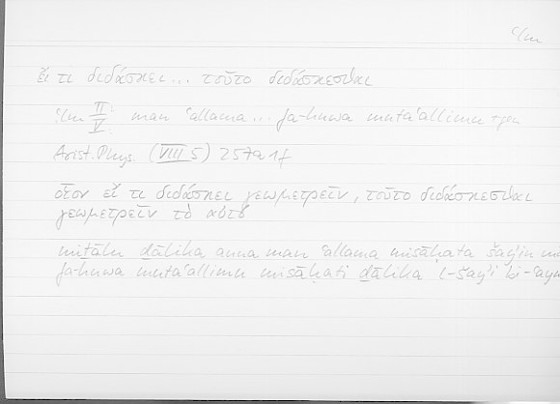 ʿlm
εἴ τι διδάσκει... τοῦτο διδάσκεσθαι
ʿlm II/V: man ʿallama... fa-huwa mutaʿallimu + gen
Arist. Phys. (VIII 5) 257a1f
οἷον εἴ τι διδάσκει γεωμετρεῖν, τοῦτο διδάσκεσθαι
γεωμετρεῖν τὸ αὐτό
mitālu ḏālika anna man ʿallama misāḥata šayʾin
fa-huwa mutaʿallimu misāḥati ḏālika l-šayʾi bi-ʿayn